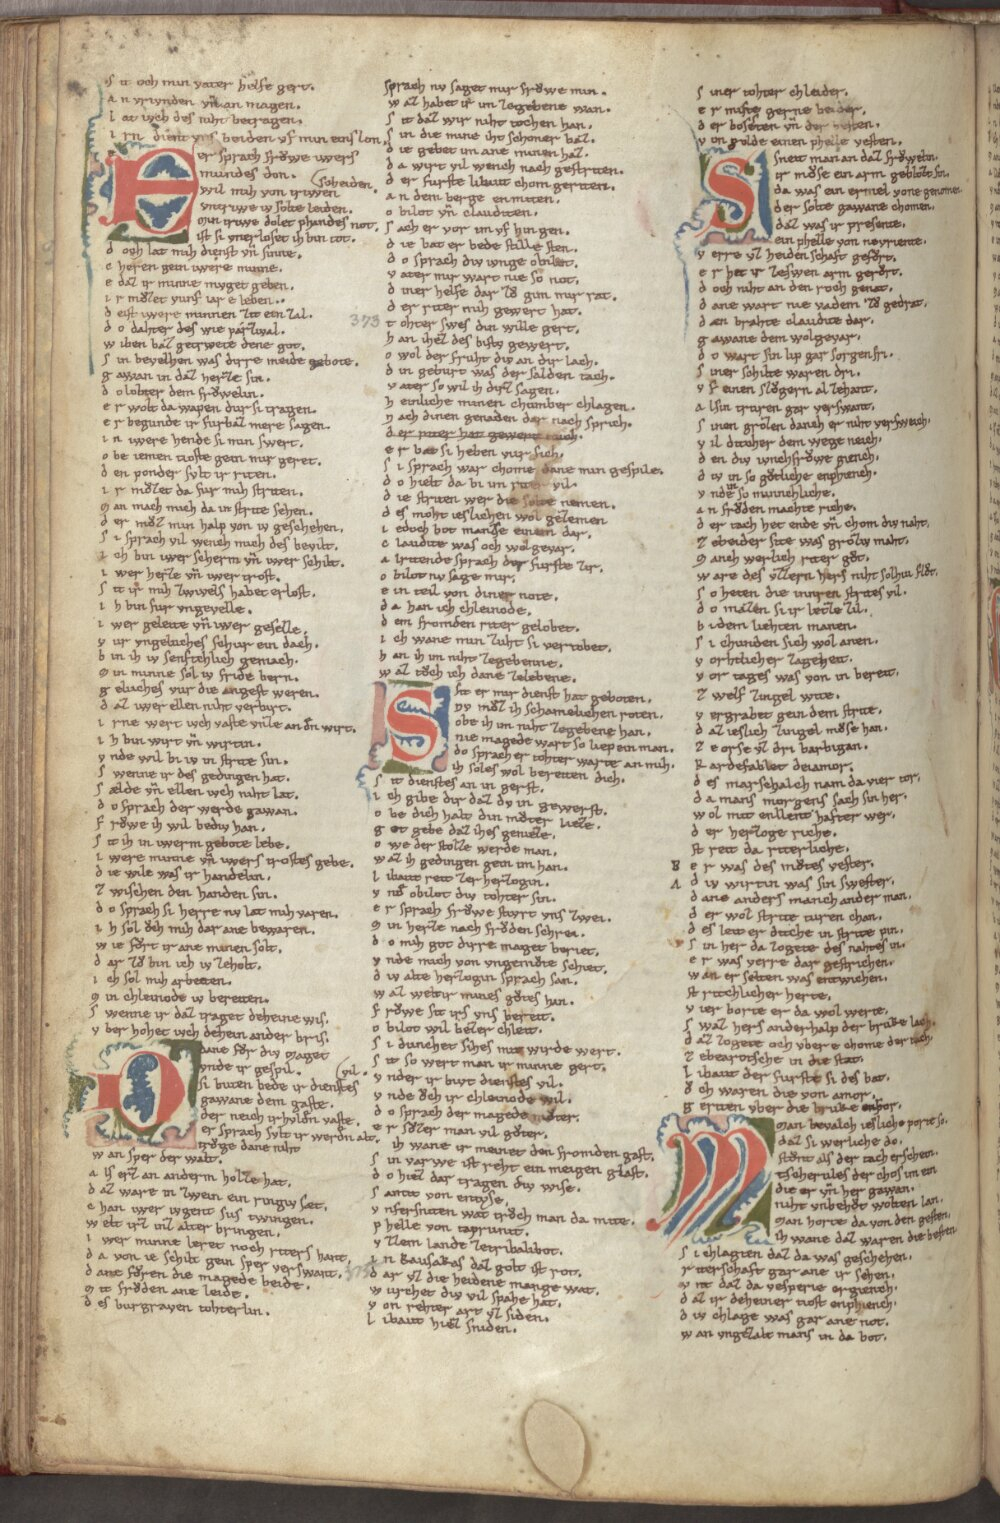 S it och min vater helfe gert.
a n vriunden vn an magen.
l at iuch des niht betragen.
i rn dient uns beiden uf min eins lon.
Er sprach frowe iwers
mundes don.
wil mih von triwen scheiden.
untriwe iu solte leiden.
min triwe dolet phandes not.
ist si unerloset ih bin tot.
d och lat mih dienst vn sinne.
c heren gein iwere minne.
e daz ir minne muget geben.
i r mozet funf iar e leben.
d eist iwere minnen zit ein zal.
d o dahter des wie parzival.
w iben baz getrwete dene got.
s in bevelhen was dirre meide gebote.
g awan in daz herze sin.
d o lobter dem frowelin.
e r wolt da wapen dur si tragen.
e r begunde ir furbaz mere sagen.
i n iwere hende si min swert.
o be iemen tioste gein mir geret.
d en ponder sult ir riten.
i r mozet da fur mih striten.
m an mach mich da in strite sehen.
d er moz min halp von iu geschehen.
s i sprach vil wench mich des bevilt.
i ch bin iwer scherm vn iwer schilt.
i wer herze vn iwer trost.
s it ir mih zwivels habet erlost.
i h bin fur ungevelle.
i wer geleite vn iwer geselle.
v ur ungeluches schur ein dach.
b in ih iu senftchlich gemach.
m in minne sol iu fride bern.
g eluches vur die angest weren.
d az iwer ellen niht verbirt.
i rne wert iuch vaste unze an dn wirt.
i h bin wirt vn wirtin.
v nde wil bi iu in strite sin.
s wenne ir des gedingen hat.
s ælde vn ellen iuch niht lat.
d o sprach der werde gawan.
f rowe ih wil bediu han.
s it ih in iwerm gebote lebe.
i were minne vn iwers trostes gebe.
d ie wile was ir handelan.
z wischen den handen sin.
d o sprach si herre nu lat mih varen.
i h sol och mih dar ane bewaren.
w ie fort ir ane minen solt.
d ar zo bin ich iu ze holt.
i ch sol mih arbeiten.
m in chleinode iu bereiten.
s wenne ir daz traget deheine wis.
v ber hohet iuch dehein ander bris.
Dane for diu maget
vnde ir gespil.
si buten bede ir dienstes vil.
gawane dem gaste.
der neich ir hulden vaste.
er sprach sult ir werden alt.
trofe dane niht
w an sper der walt.
a ls erz an anderm holze hat.
d az ware in zwein ein ringiu sat.
c han iwer iugent sus twingen.
w elt irz inz alter bringen.
i wer minne leret noch riters hant.
d a von ie schilt gein sper verswant.
d ane foren die magede beide.
m it froden ane leide.
d es burgraven tohterlin.
sprach nu saget mir frowe min.
w az habet ir im zegebene wan.
s it daz wir niht tochen han.
s in die mine iht schoner baz.
d ie gebet im ane minen haz.
d a wirt vil wench nach gestriten.
d er furste libaut chom geriten.
a n dem berge enmiten.
o bilot vn clauditten.
s ach er vor im uf hin gen.
d ie bat er bede stille sten.
d o sprach diu iunge obilot.
v ater mir wart nie so not.
d iner helfe dar zo gim mir rat.
d er riter mih gewert hat.
373
t ohter swes din wille gert.
h an ihez des bistu gewert.
o wol der fruht diu an dir lach.
d in geburt was der sælden tach.
v ater so wil ih dirz sagen.
h einliche minen chumber chlagen.
n ach dinen genaden dar nach sprich.
d er riter hat gewert mich.
e r bat si heben vur sich.
s i sprach war chome dane min gespile.
d o hielt da bi im riter vil.
d ie striten wer die solte nemen.
d es moht iesliechen wol gezemen
i edoch bot manse einem dar.
c laudite was och wolgevar.
a lritende sprach der furste zir.
o bilot nu sage mir.
e in teil von diner note.
d a han ich chleinode.
d em fromden riter gelobet.
i ch wane min zuht si vertobet.
h an ih im niht zegebenne.
w az toch ich dane zelebene.
Sit er mir dienst hat geboten.
nu moz ih schameliechen roten.
obe ih im niht zegebene han.
nie magede wart so liep ein man.
do sprach er tohter warte an mih.
ih soles wol bereiten dich.
S it dienstes an in gerst.
i ch gibe dir daz du in gewerst.
o be dich halt din moter lieze.
g ot gebe daz ihes genieze.
o we der stolze werde man.
w az ih gedingen gein im han.
l ibaut reit zer herzogin.
v nd obilot diu tohter sin.
e r sprach frowe stiurt uns zwei.
m in herze nach froden schrei.
d o mih got dirre maget beriet.
v nde mich von ungemote schiet.
d iu alte herzogin sprach san.
w az welt ir mines gotes han.
f rowe sit irs uns bereit.
o bilot wil bezer chleit.
s i dunchet sihes mit wirde wert.
s it so wert man ir minne gert.
v nder ir biut dienstes vil.
v nde och ir chleinode wil.
d o sprach der magede moter.
e r sozer man vil goter.
ih wane ir meinet den fromden gast.
s in varwe ist reht ein meigen glast.
d o hiez dar tragen diu wise.
s amit von entyse.
v nfersniten wat troch man da mite.
p helle von tabrunit.
v zem lande zetribalibot.
a n kausakas daz golt ist rot.
373
d ar uz die heidene mange wat.
w urchet diu vil spahe hat.
v on rehter art uz siden.
l ibaut hiez sniden.
s iner tohter chleider.
e r miste gerne beider.
d er bosesten vn der besten.
v on golde einen phelle vesten.
Sneit man an daz frowelin.
ir mose ein arm geblozt sin.
da was ein ermel vone genomen.
der solte gawane chomen.
daz was ir presente.
ein phelle von neuriente.
v erre uz heidenschaft gefort.
e r het ir zeswen arm gerort.
d och niht an den roch genat.
d ane wart nie vadem zo gedrat.
d en brahte claudite dar.
g awane dem wolgevar.
d o wart sin lip gar sorgen fri.
s iner schilte waren dri.
v f einen slogern al zehant.
a lsin truren gar verswant.
s inen grozen danch er niht versweich.
v il ditcher dem wege neich.
d en diu iunchfrowe giench.
d iu in so gotliche enphiench.
v nde in so minnechliche.
a n froden machte riche.
d er tach het ende vn chom diu naht.
z ebeider site was groziu maht.
m anch werlich riter got.
w are des uzzern hers niht solhiu flot.
s o heten die innren strites vil.
d o mazen si ir letze zil.
b i dem liehten manen.
s i chunden sich wol anen.
v orhtlicher zageheit.
v or tages was von in bereit.
z welf zingel wite.
v ergrabet gein dem strite.
d az ieslich zingel mose han.
z e orse uz dri barbigan.
k ardefablet deiamor.
d es marschalch nam da vier tor.
d a mans morgens sach sin her.
wol mit enllent hafter wer.
d er herzoge riche.
st reit da riterliche.
B e r was des motes vester.
A d iu wirtin was sin swester.
d ane anders manch ander man.
d er wol strite turen chan.
d es leit er ditche in strite pin.
s in her da zogete des nahtes in.
e r was verre dar gestrichen.
w an er selten was entwichen.
st ritchlicher herte.
v ier borte er da wol werte.
s waz hers anderhalp der bruke lach.
d az zogete och ubere chome der tach.
z ebearotsche in die stat.
l ibaut der furste si des bat.
d ch waren die von amor.
g eriten uber die bruke enbor.
Man bevalch iesliche porte so.
daz si werliche do.
stont als der tach erschein.
tscherules der chos im ein
die er vn her gawan.
niht unbehot wolten lan.
man horte da von den gesten.
ih wane daz waren die besten.
s i chlagten daz da was geschehen.
r iterschaft gar ane ir sehen.
v nt daz da vesperie ergiench.
d az ir deheiner tiost enphiench.
d iu chlage was gar ane not.
w an ungezalt mans in da bot.